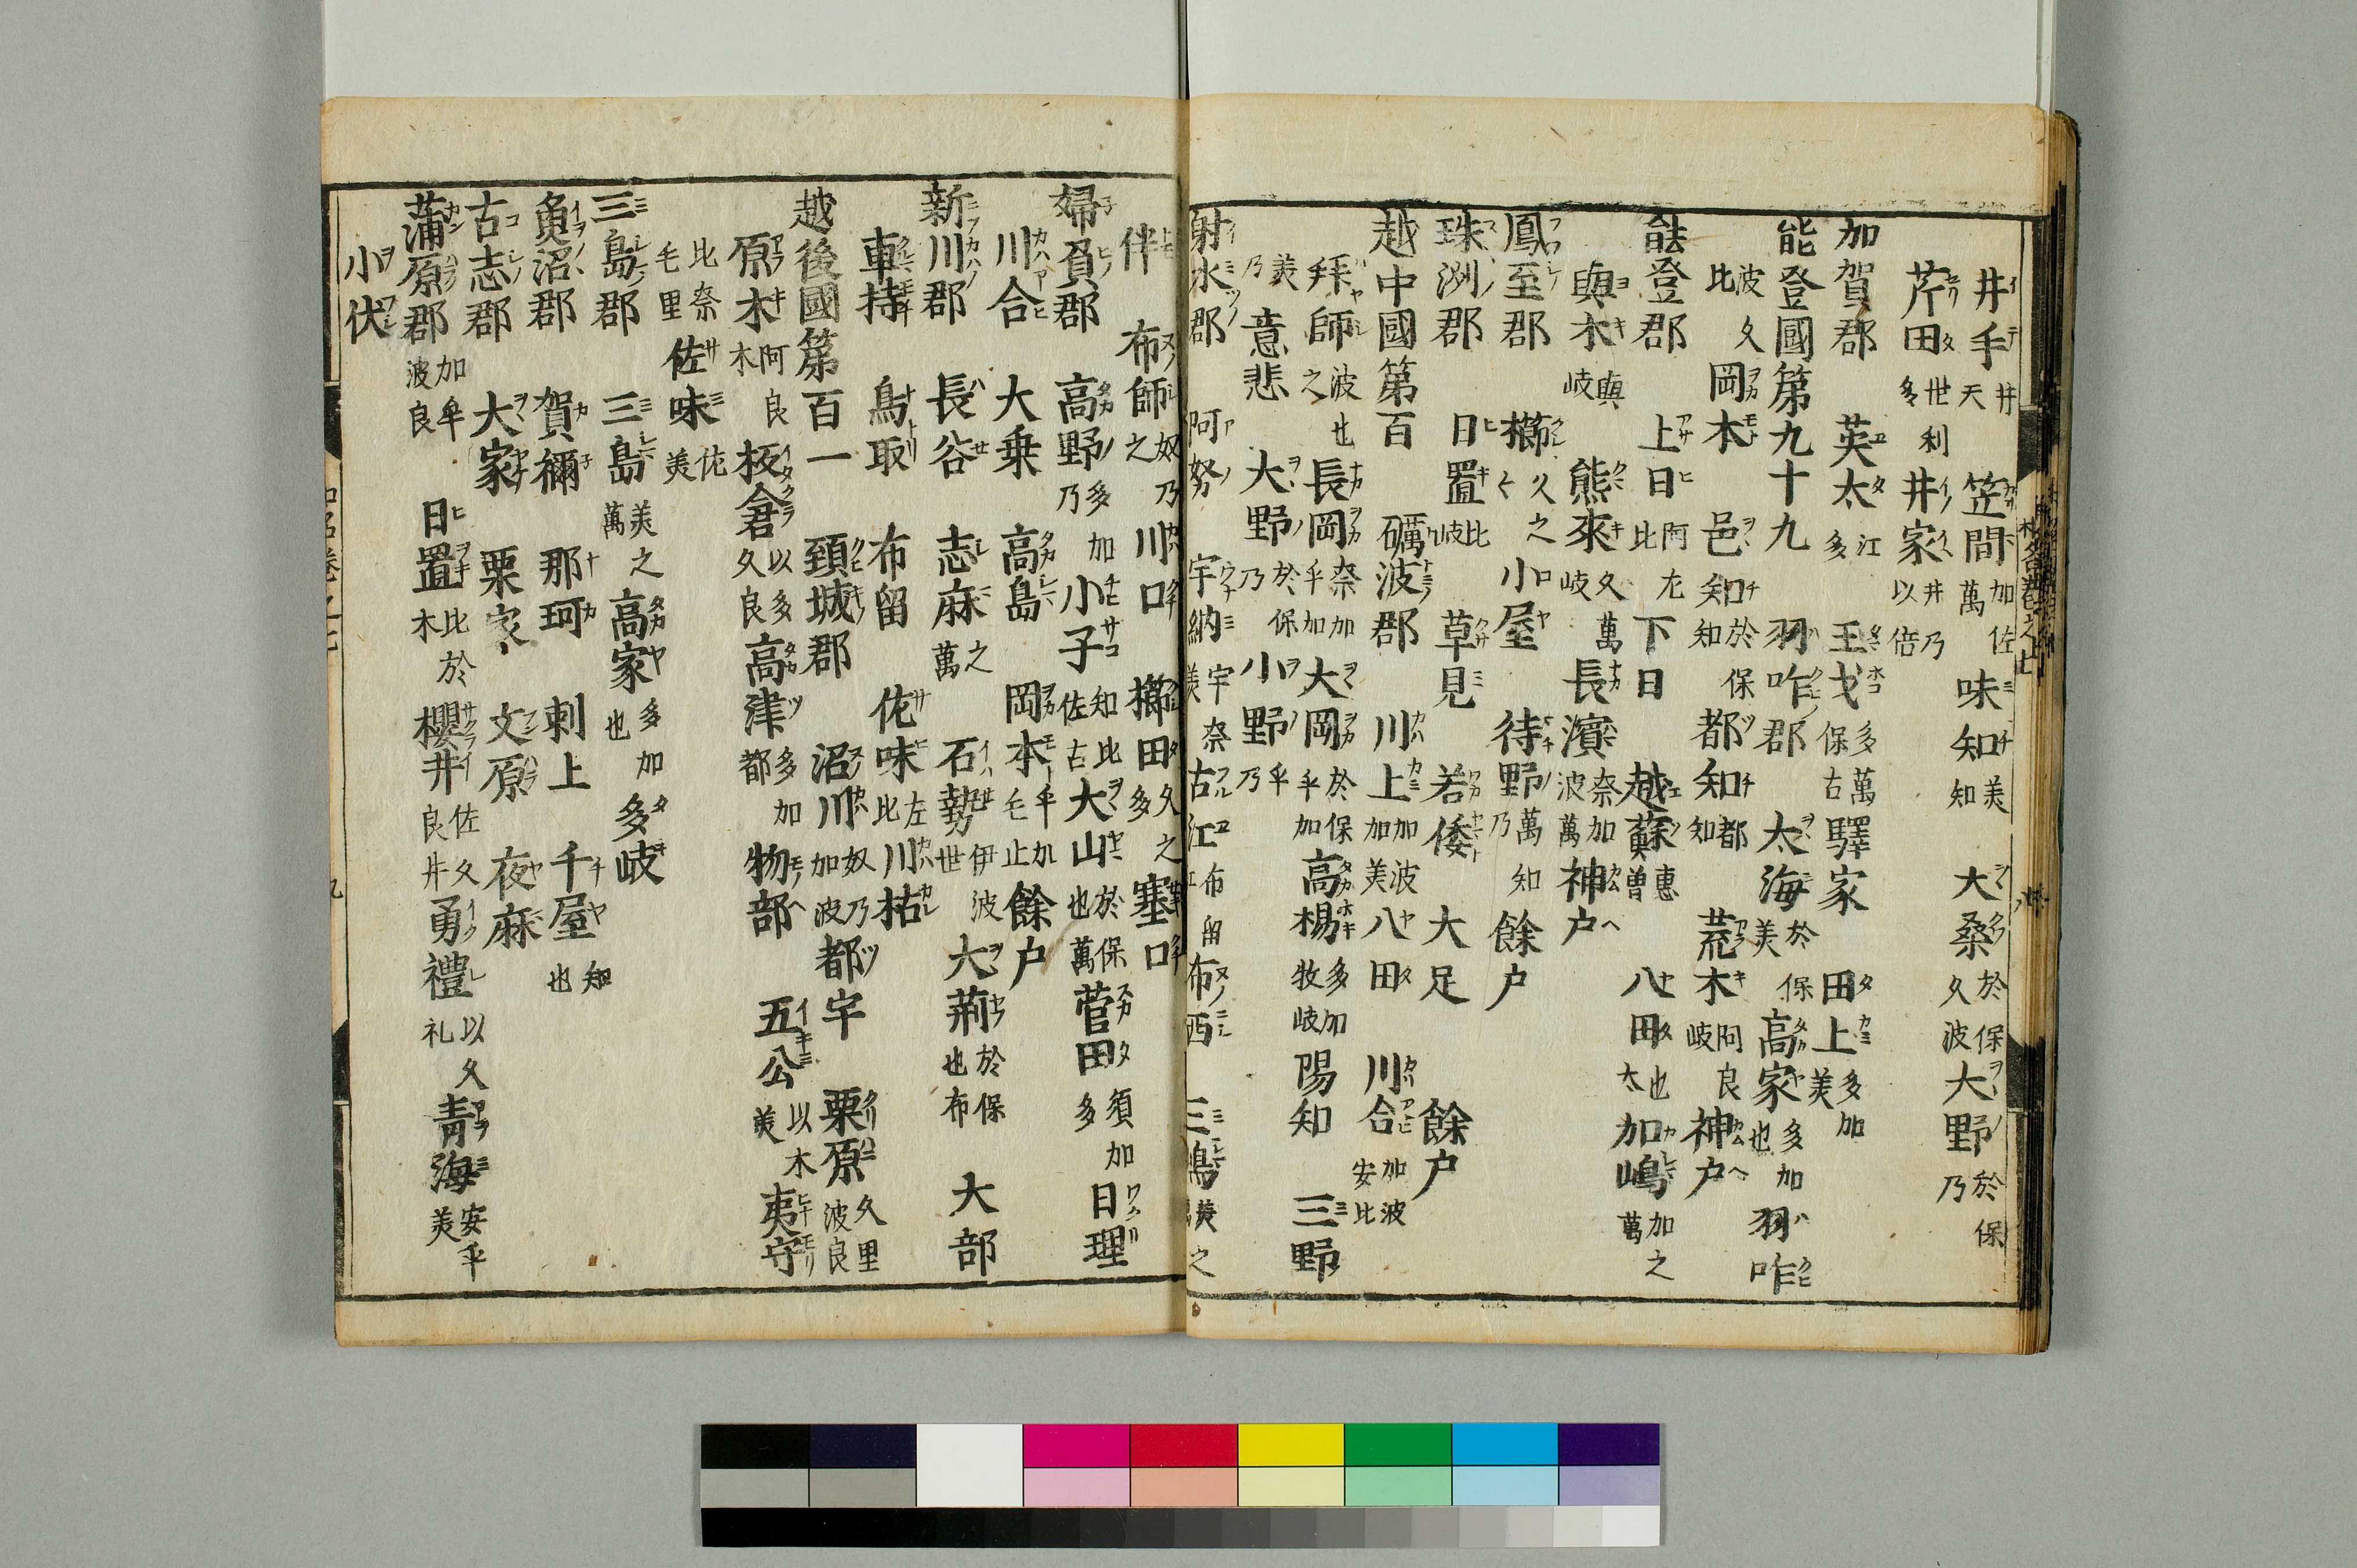 井手井天 笠間加萬佐 味知美知 大桑於保久波 大野於保乃
芹田世利多 井家井乃以倍
加賀郡 英太江多 玉戈多萬保古 驛家 田上多加美
能登國第九十九 羽咋郡 太海於保美 高家多加也 羽咋
波久比 岡本 邑知於保知 都知都知 荒木阿良岐 神戸
能登郡 上日阿左比 下日 越蘇惠曽 八田也太 加嶋加之萬
與木與岐 熊來久萬岐 長濱奈加波萬 神戸
鳳至郡 櫛久之 小屋 待野萬知乃 餘戸
珠洲郡 日置比岐 草見 若倭 大足 餘戸
越中國第百 礪波郡 川上加波加美 八田 川合加波安比
拜師波也之 長岡奈加乎加 大岡於保乎加 高楊多加牧岐 陽知 三野
美乃 意悲 大野於保乃 小野乎乃
射水郡 阿努 宇納宇奈美 古江布留江 布西 三嶋美之萬
伴 布師奴乃之 川口 櫛田久之多 塞口
婦負郡 高野多加乃 小子知比佐古 大山於保也萬 菅田須加多 日理
川合 大乗 高島 岡本乎加毛止 餘戸
新川郡 長谷 志麻之萬 石勢伊波世 大荊於保也布 大部
車持 鳥取 布留 佐味左比 川枯
越後國第百一 頚城郡 沼川奴乃加波 都宇 栗原久里波良
原木阿良木 板倉以多久良 高津多加都 物部 五公以木美 夷守
比奈毛里 佐味佐美
三島郡 三島美之萬 高家多加也 多岐
魚沼郡 賀禰 那珂 刺上 千屋知也
古志郡 大家 栗家 文原 夜麻
蒲原郡加牟波良 日置比於木 櫻井佐久良井 勇禮以久礼 青海安乎美
小伏